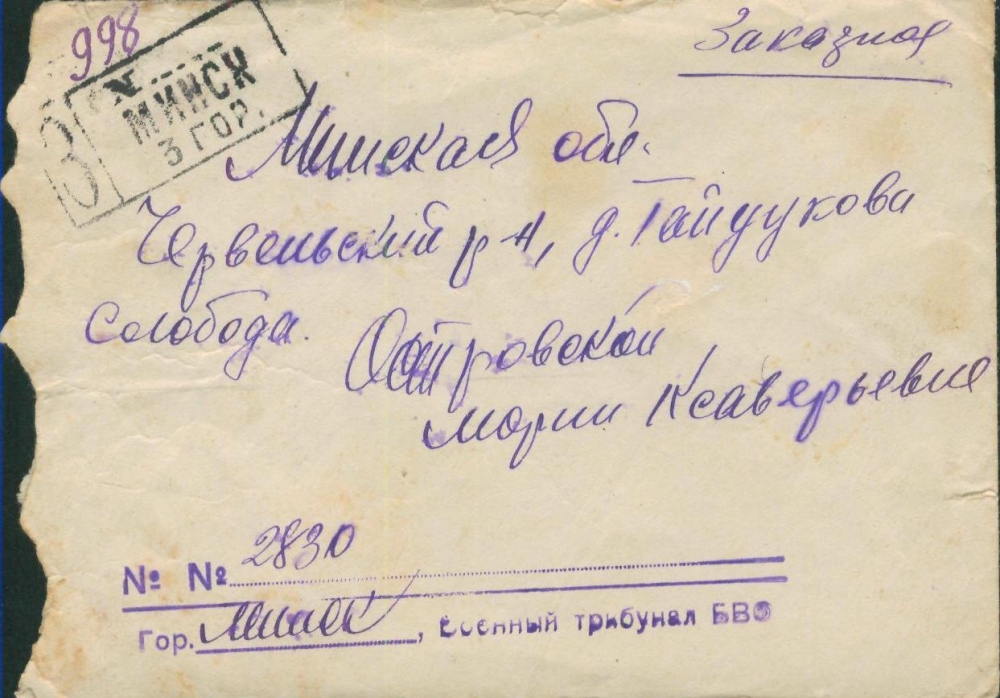 998
Заказная
З МИНСК
3 ГОР.
Минская обл.
Червеньский р-н, д. Гайдукова
Слобода.
Островской
Марии Ксаверьевне
№ № 2830
Гор. Минск, Военный трибунал БВО